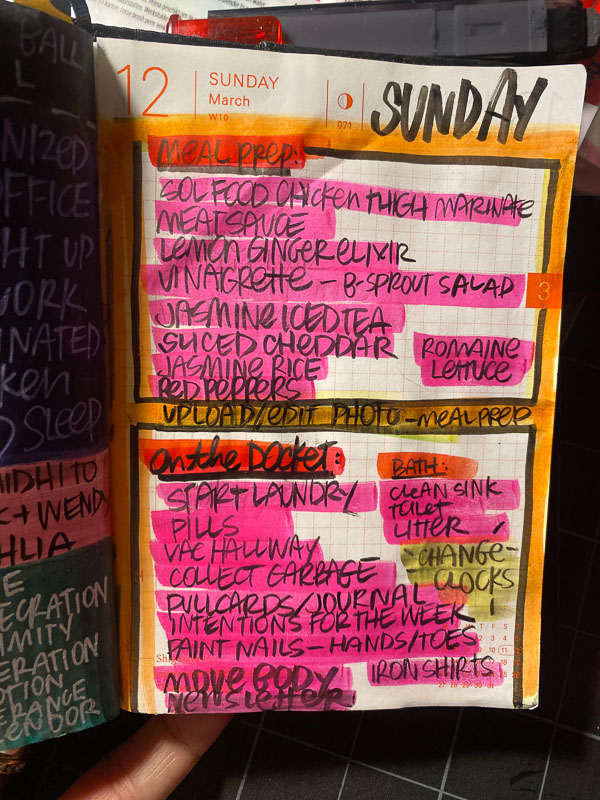 BALL
L
NIZED
OFFICE
GHT UP
WORK
INATED
KEN
D SLEEP
AIDHITO
K + WENDY
HLIA
E
TEGRATION
IMITY
ERATION
OTION
ERANCE
ENDOR
12
SUNDAY
March
W10
071
SUNDAY
MEAL PREP:
SOL FOOD CHICKEN THIGH MARINATE
MEAT SAUCE
LEMON GINGER ELIXIR
VINAGRETTE - B-SPROUT SALAD
3
JASMINE ICED TEA
SLICED CHEDDAR
JASMINE RICE
RED PEPPERS
ROMAINE
LETTUCE
UPLOAD/EDIT PHOTO - MEAL PREP
ON THE DOCKET:
START LAUNDRY
PILLS
VAC HALLWAY
COLLECT GARBAGE
PULL CARDS/JOURNAL
INTENTIONS FOR THE WEEK
PAINT NAILS - HANDS/TOES
MOVE BODY
NEWSLETTER
BATH:
CLEAN SINK
TOILET
LITTER
-CHANGE-
CLOCKS
!
IRON SHIRTS